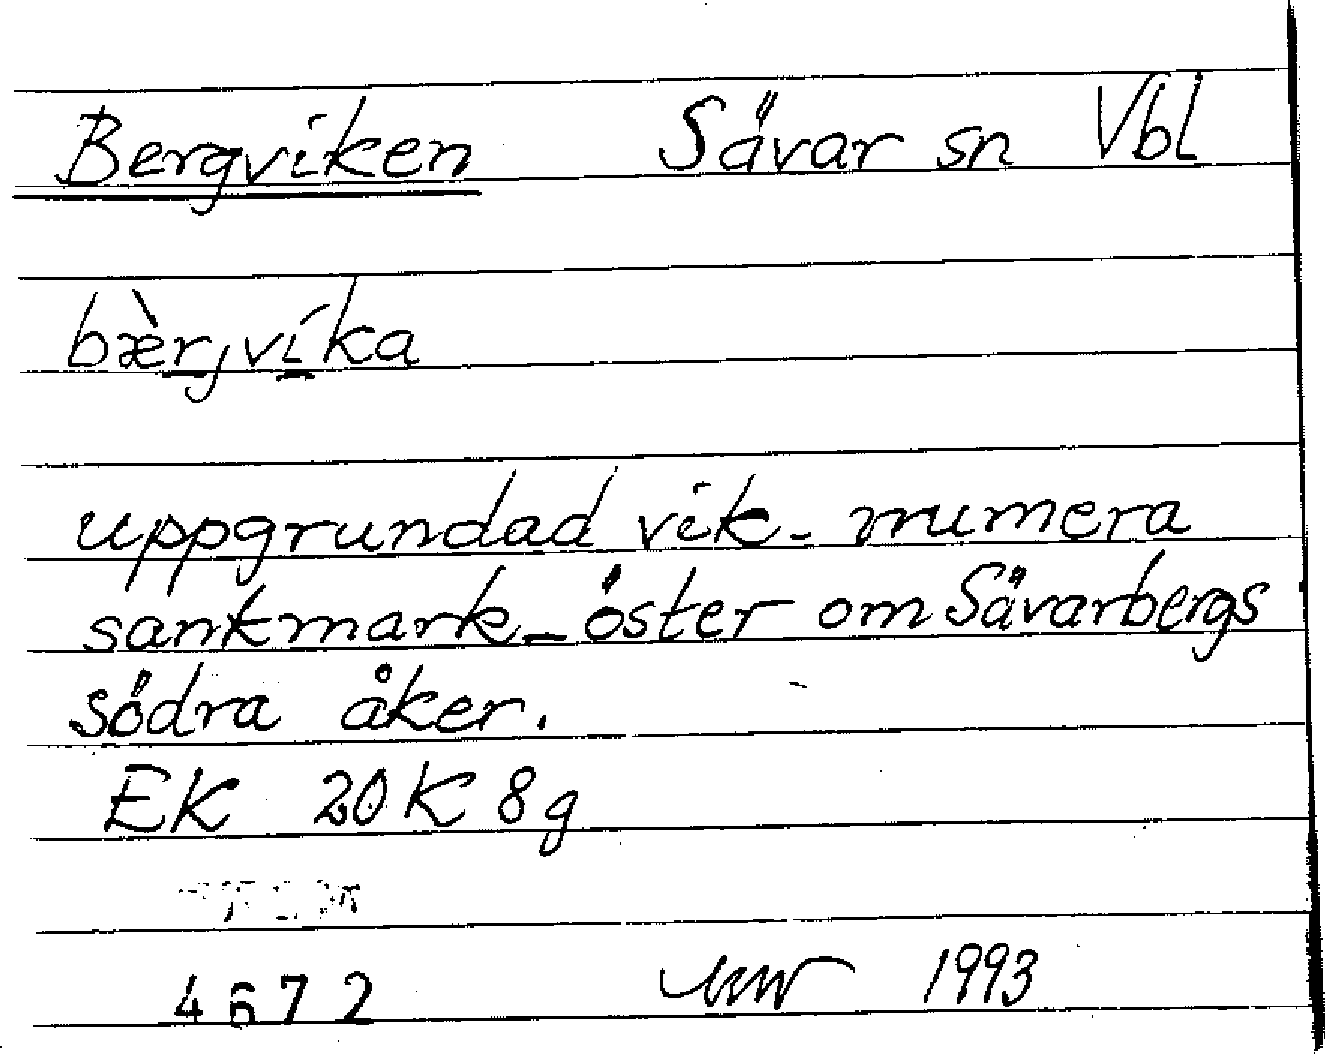 Bergviken Sävar sn Vbl
bæ̀rjvíka
uppgrundad vik - numera
sankmark - öster om Sävarbergs
södra åker.
EK 20K 8g
4672 1993